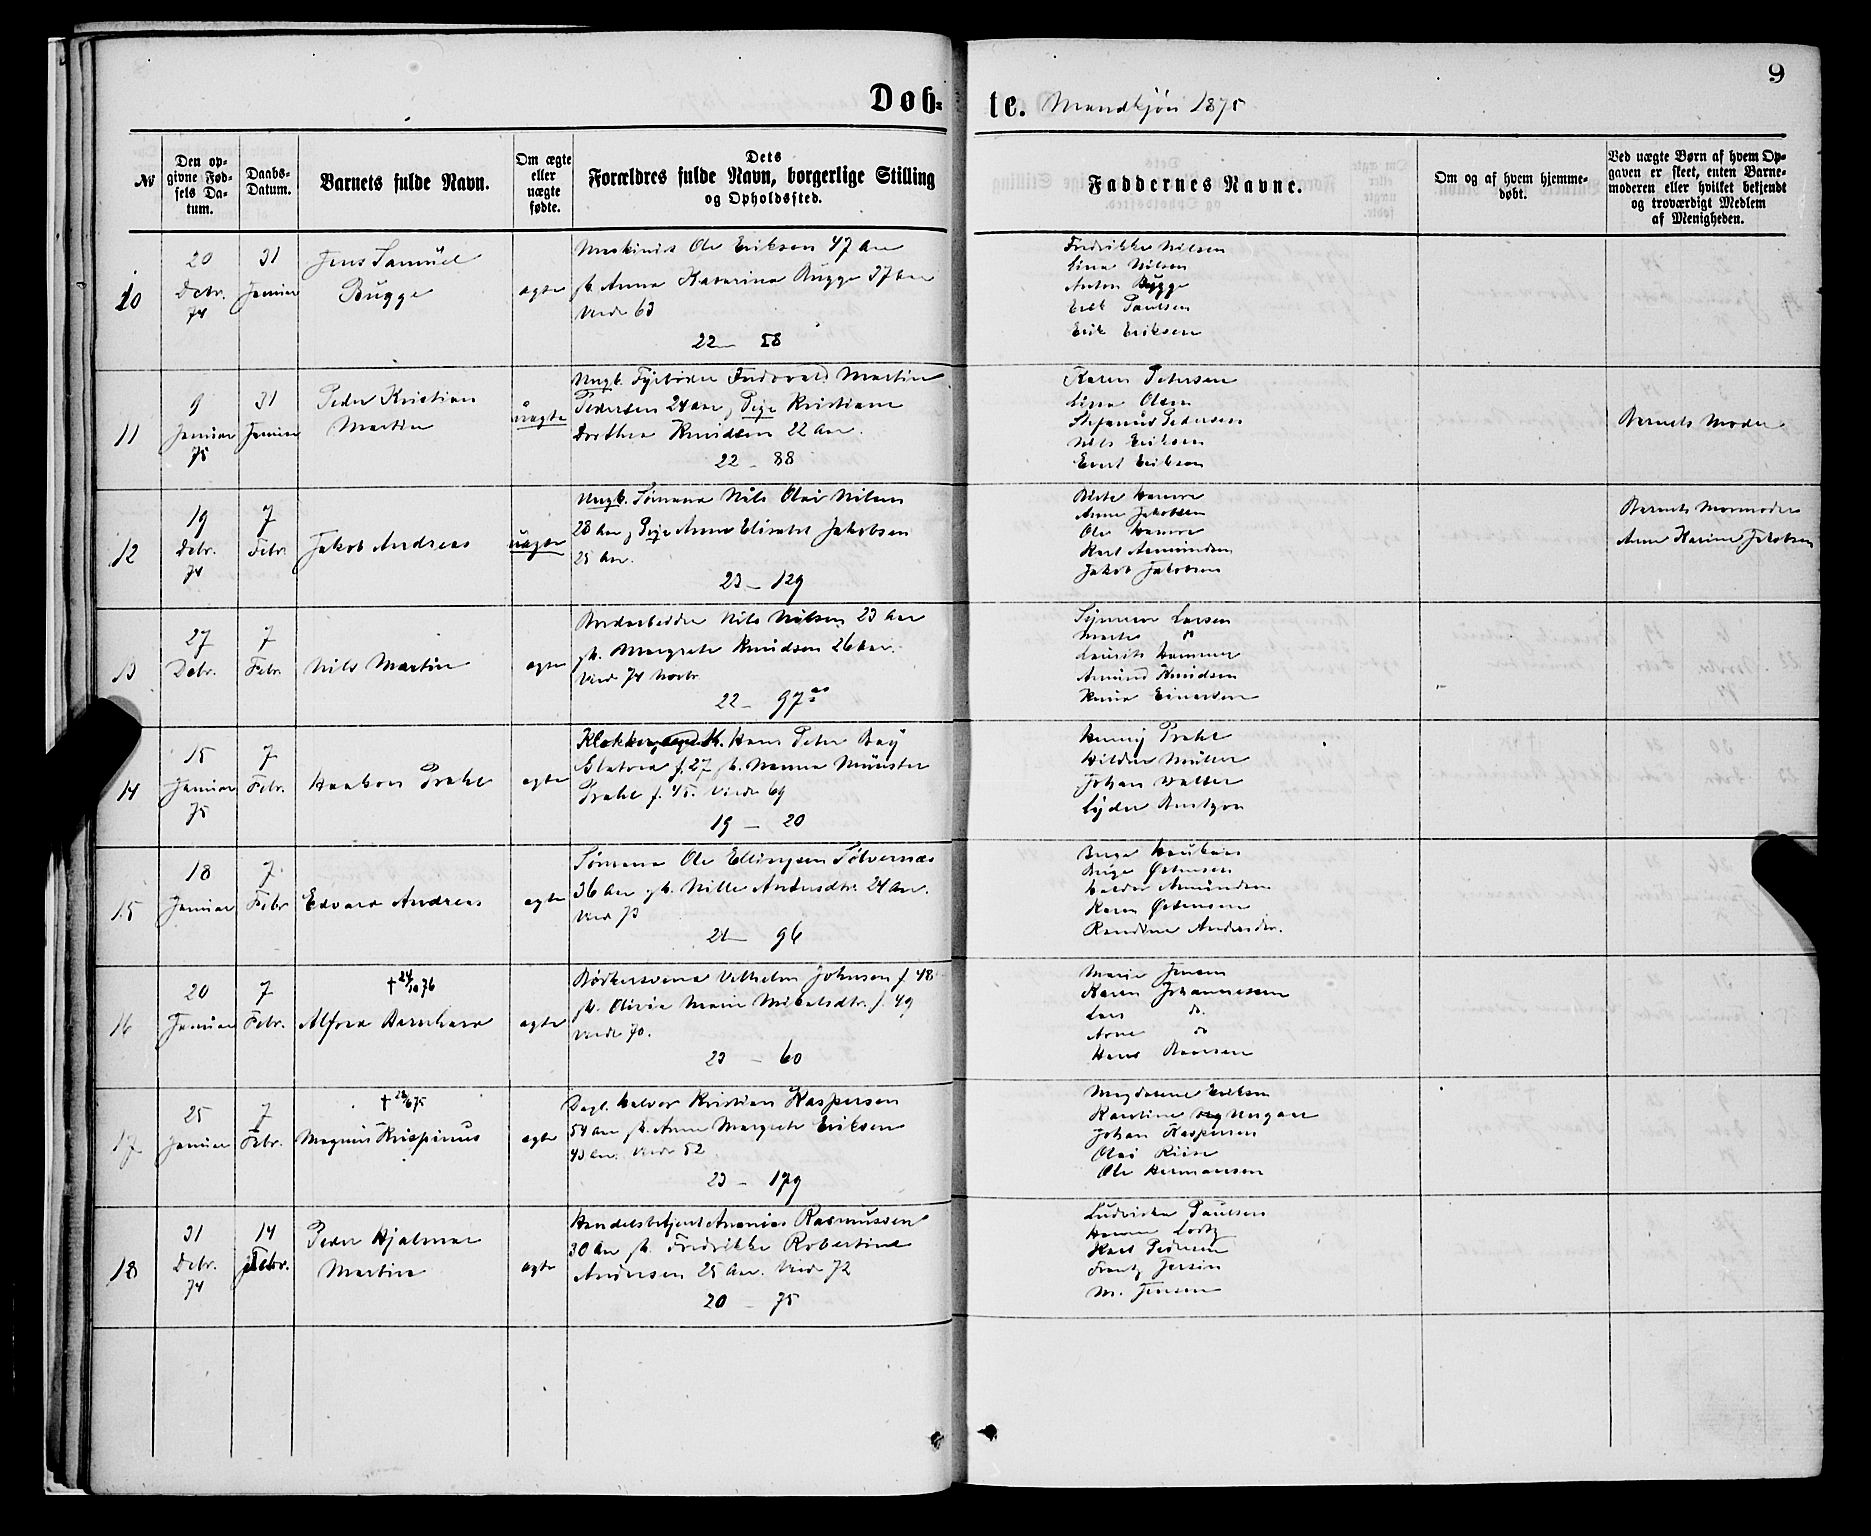 9
Døbte. Mandkjøn 1875
№
Den opgivne Fødsels Datum.
Daabs-Datum.
Barnets fulde Navn.
Om ægte eller uægte fødte.
Dets Forældres fulde Navn, borgerlige Stilling og Opholdssted.
Faddernes Navne.
Om og af hvem hjemmedøbt.
Ved uægte Børn af hvem Opgaven er skeet, enten Barnemoderen eller hvilket bekjendt og troværdigt Medlem af Menigheden.
10
20 Debr. 74
31 Januar
Jens Samuel
Bugge
ægte
Maskinist Ole Eriksen 47 Aar
Anna Katarina Bugge 37 Aar
Viede 63
22 - 58
Fredrikke Nilsen
Lina Nilsen
Anton Bugge
Erik Paulsen
Erik Eriksen
11
9 Januar 75
31 Januar
Peder Kristian
Martin
uægte
Ungk. Fyrbøder Martin
Pedersen 24 Aar, Pige Kristiane
Dorthea Knudsen 22 Aar.
22 - 88
Karen Petersen
Lina Olsen
Stefanus Pedersen
Nils Eriksen
Evert Eriksen
Barnets Moder
12
19 Debr. 74
7 Febr.
Jakob Andreas
uægte
Ungk. Sømand Nils Olai Nilsen
28 Aar, Pige Anne Elisabet Jakobsen
25 Aar.
23 - 129
Anne Jakobsen
Ole
Karl Asmundsen
Jakob Jakobsen
Barnets Mormoder
Anne Karine Jakobsen
13
27 Debr.
7 Febr.
Nils Martin
ægte
Nils Nilsen 23 Aar
Margrete Knudsen 26 Aar.
Viede 74 Novbr.
22 - 97
Larsen
Marte do
Laurits Hammer
Asmund Knudsen
Einersen
14
15 Januar 75
7 Febr.
Haakon Prahl
ægte
Klokker Hans Peter Bøy
f. 27 Nanna Münster
Prahl f. 45. Viede 69
19 - 20
Henny Prahl
Hilda Müller
Johan Walter
Lyder
15
18 Januar
7 Febr
Edvard Andreas
ægte
Sømand Ole Ellingsen Sølvernæs
36 Aar Nille Andersdtr. 24 Aar.
Viede 73
21 - 96
Østensen
Halvor Asmundsen
Karen Østensen
Randine Andersdtr.
16
20 Januar
7 Febr.
† 24/10 76
Alfred Bernhard
ægte
Bødkersvend Vilhelm Johnsen f. 48
Olivia Marie Mikelsdtr. f. 49
Viede 70.
23 - 60
Marie Jensen
Karen Johannesen
Lars do.
Arne do
Hans
17
25 Januar
7 Febr.
Magnus Krispinus
ægte
Dagl. Halvor Kristian Kaspersen
54 Aar Anne Margrete Eriksen
43 Aar. Viede 52
23 - 179
Magdalene Eriksen
Karoline
Johan Kaspersen
Olai Riise
Ole Hermansen
18
31 Debr. 74
14 Febr.
Peder Hjalmar
Martin
ægte
Handelsbetjent Ananias Rasmussen
30 Aar Fredrikke Robertine
Andersen 25 Aar. Viede 72
20 - 75
Ludvikke Paulsen
Hanna Lortz
Karl Pedersen
Frantz Jersin
M. Jensen